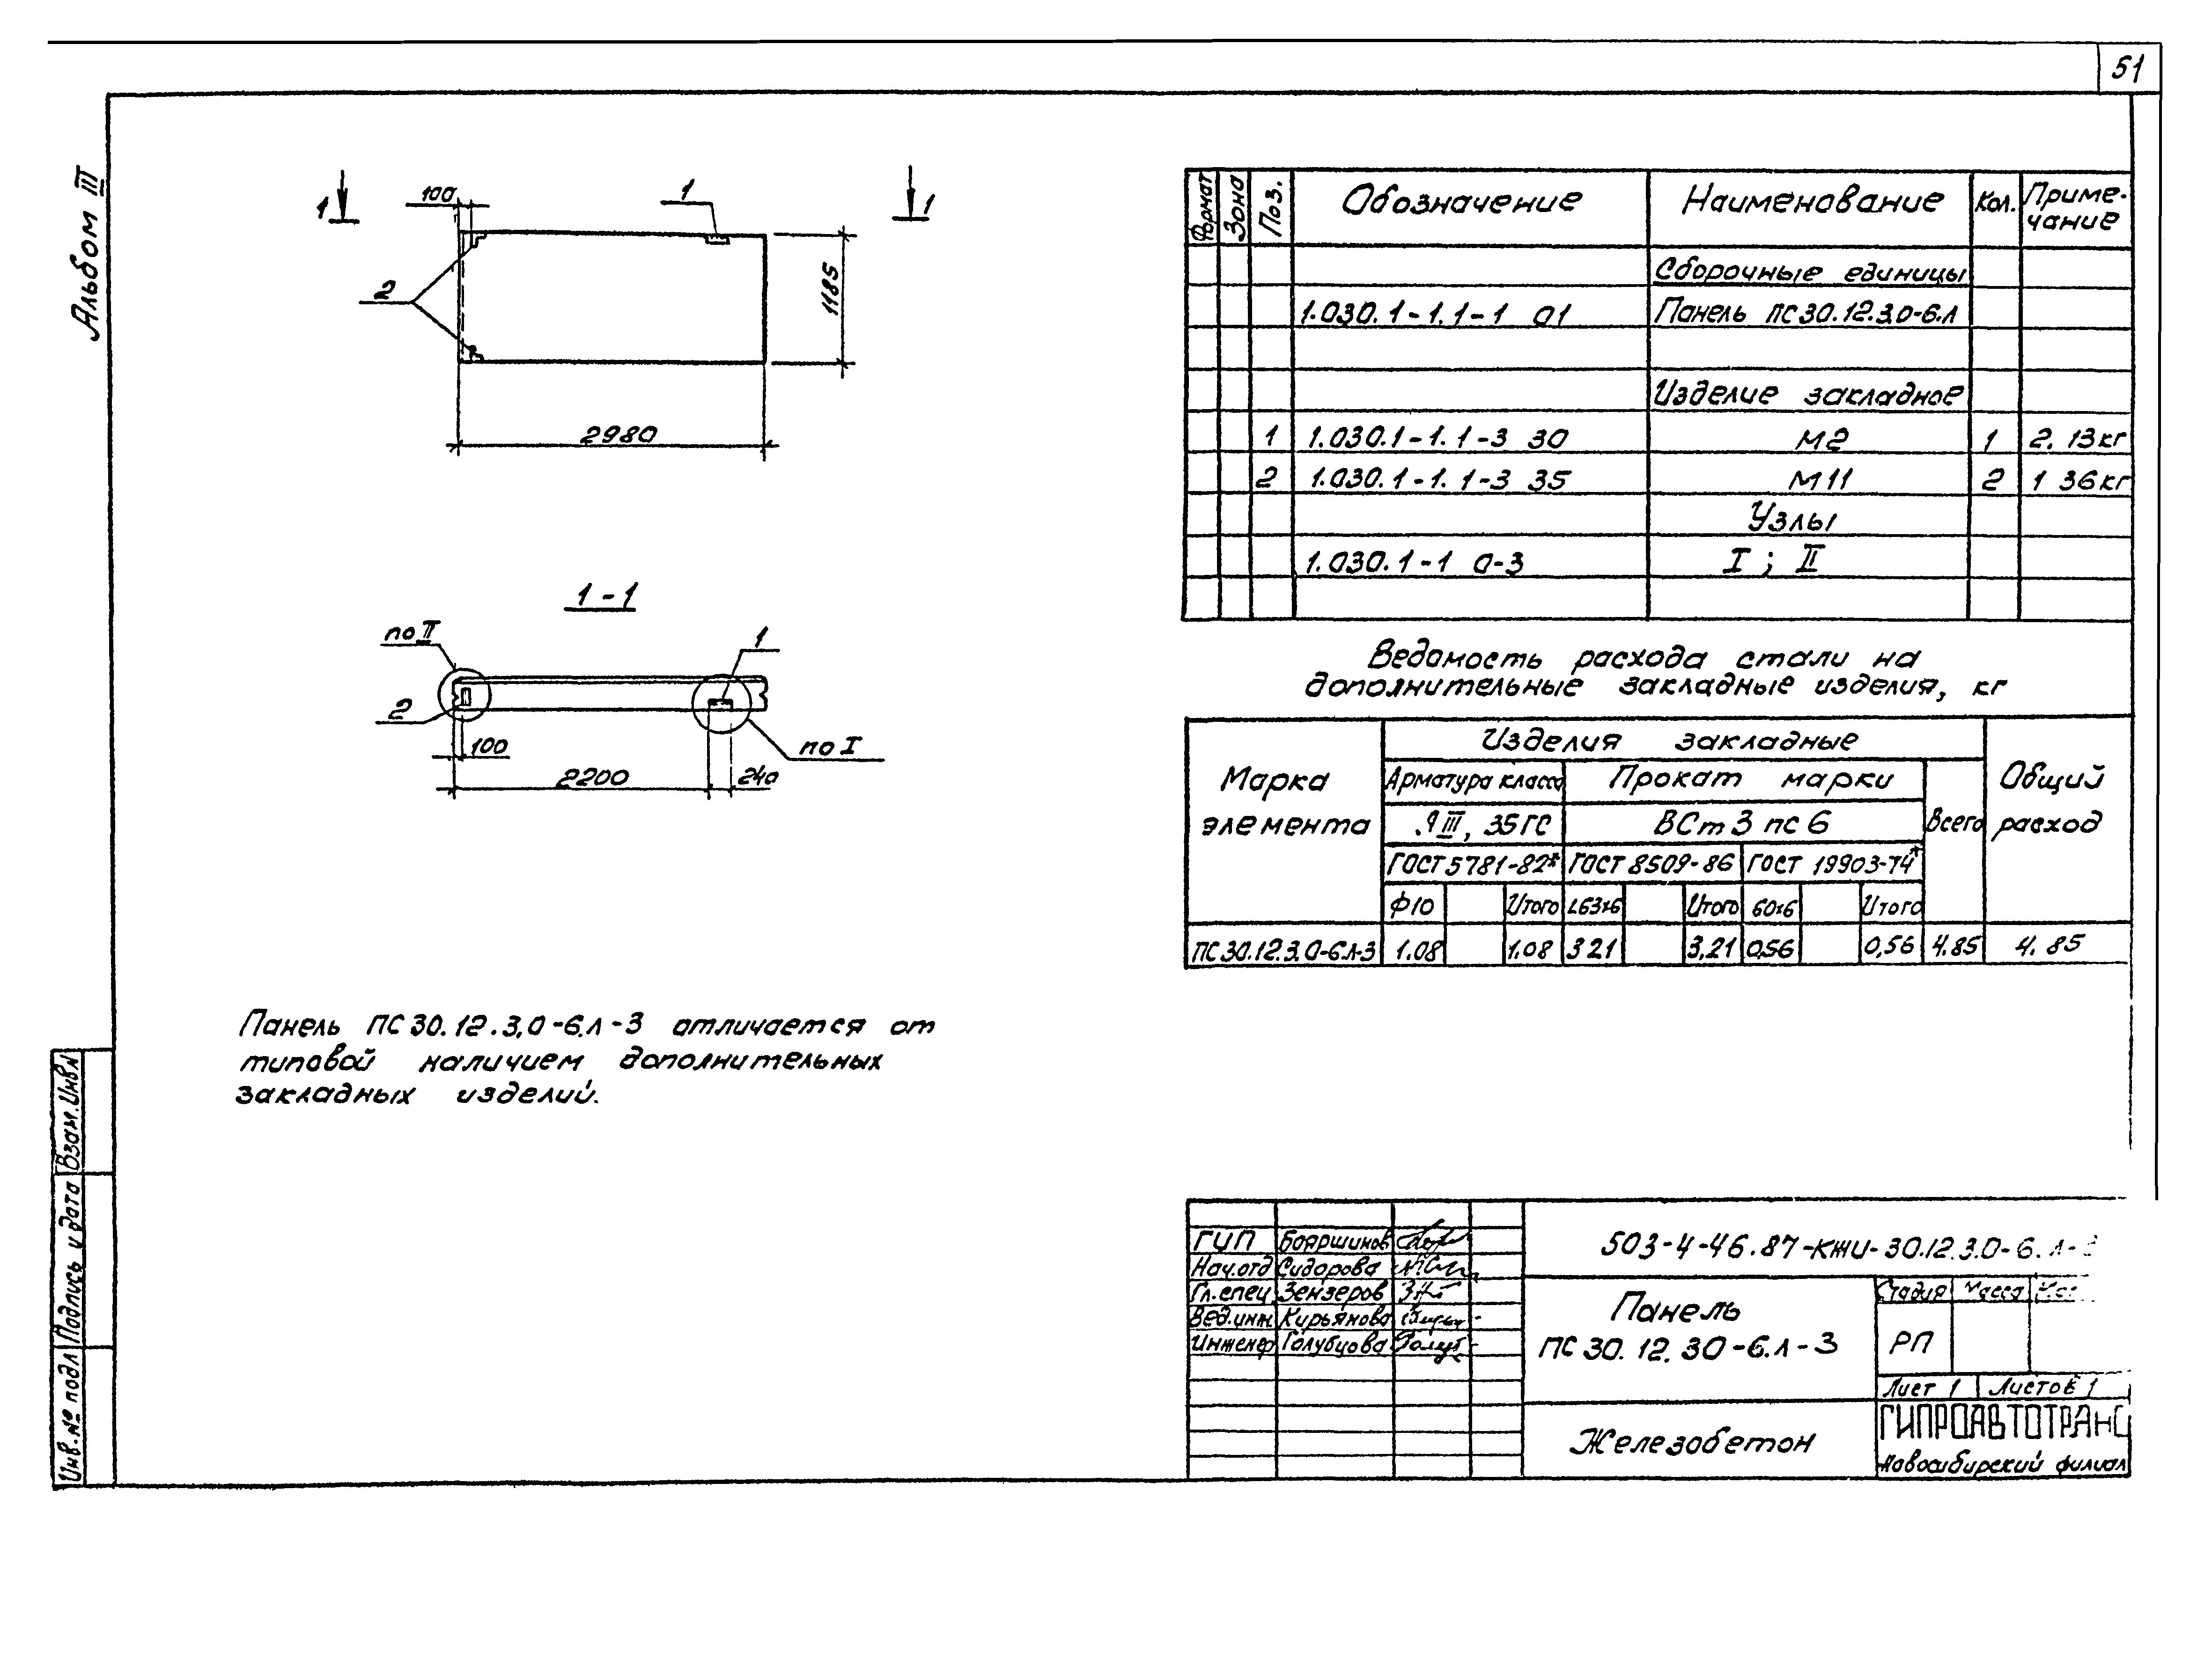 51
Альбом III
1 1
100
1
2
1185
2980
1-1
по II
1
2
100
по I
2200 240
Панель ПС30.12.3,0-6.л-3 отличается от
типовой наличием дополнительных
закладных изделий.
Формат Зона Поз. Обозначение Наименование Кол. Приме-
чание
Сборочные единицы
1.030.1-1.1-1 01 Панель ПС30.12.3.0-6.л
Изделие закладное
1 1.030.1-1.1-3 30 М2 1 2.13кг
2 1.030.1-1.1-3 35 М11 2 1 36кг
Узлы
1.030.1-1 0-3 I ; II
Ведомость расхода стали на
дополнительные закладные изделия, кг
Марка элемента Изделия закладные Общий расход
Арматура класса Прокат марки Всего
АIII, 35ГС ВСт3 пс 6
ГОСТ 5781-82* ГОСТ 8509-86 ГОСТ 19903-74*
Ф10 Итого L63х6 Итого 60х6 Итого
ПС30.12.3.0-6.л-3 1.08 1.08 3 21 3,21 0,56 0,56 4.85 4.85
Взам.Инв.№
Подпись и дата
Инв.№ подл
ГИП Бояршинов
Нач.отд Сидорова
Гл.спец. Зензеров
Вед.инж. Кирьянова
Инженер Голубцова
503-4-46.87-КЖИ-30.12.3.0-6.л-3
Панель
ПС30.12.30-6.л-3
Стадия Масса
РП
Лист 1 Листов 1
Железобетон
ГИПРОАВТОТРАНС
Новосибирский филиал